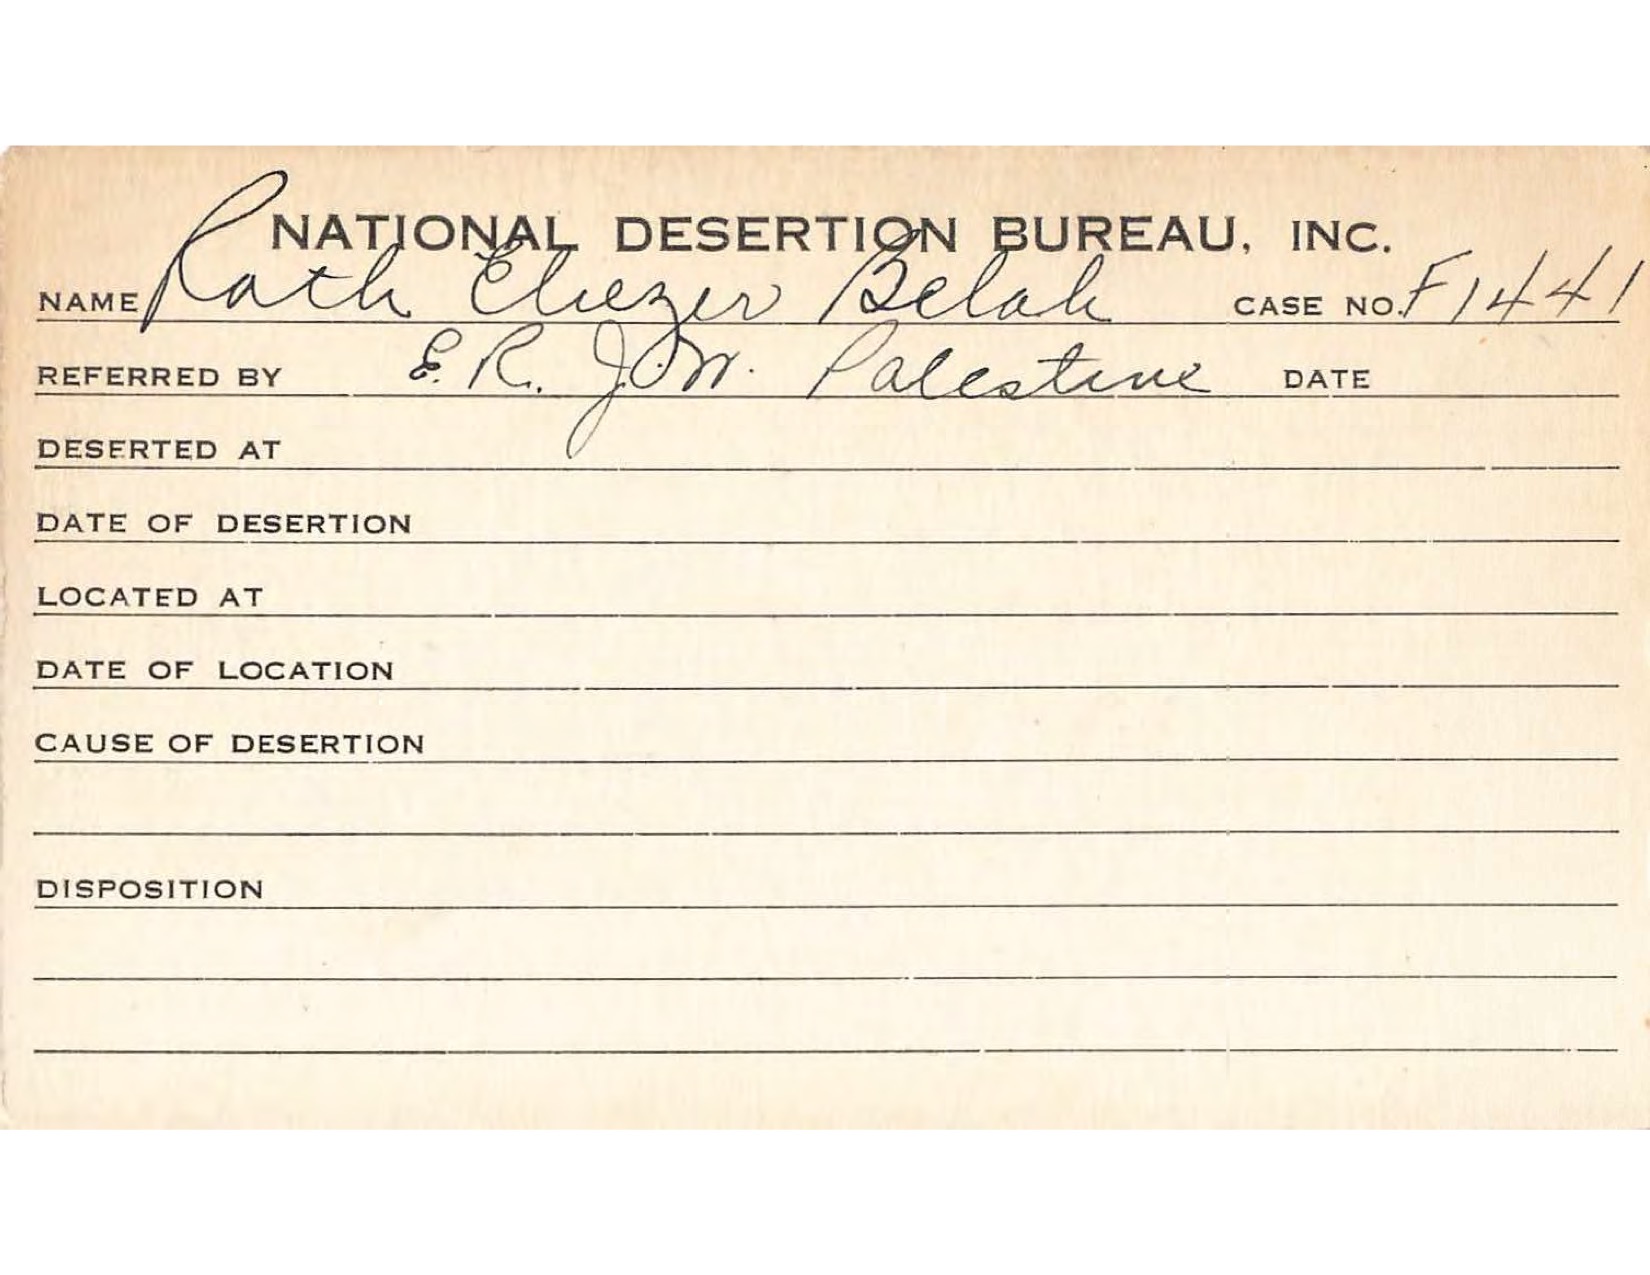 NATIONAL DESERTION BUREAU, INC.
NAME Rath Eliezer Belah CASE NO. F1441
REFERRED BY E. R. J.O.W. Palestine DATE
DESERTED AT
DATE OF DESERTION
LOCATED AT
DATE OF LOCATION
CAUSE OF DESERTION
DISPOSITION